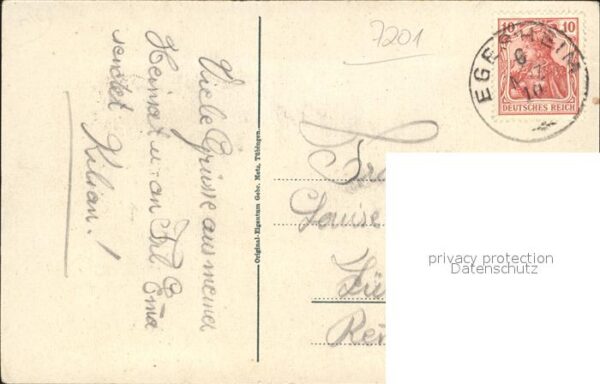 Viele Grüsse aus meiner
Heimat u. an Frl. Ema
sendet
Kilian!
Original-Eigentum Gebr. Metz, Tübingen
7201
10 10
DEUTSCHES REICH
EGESHEIM
6
10
Louise
privacy protection
Datenschutz